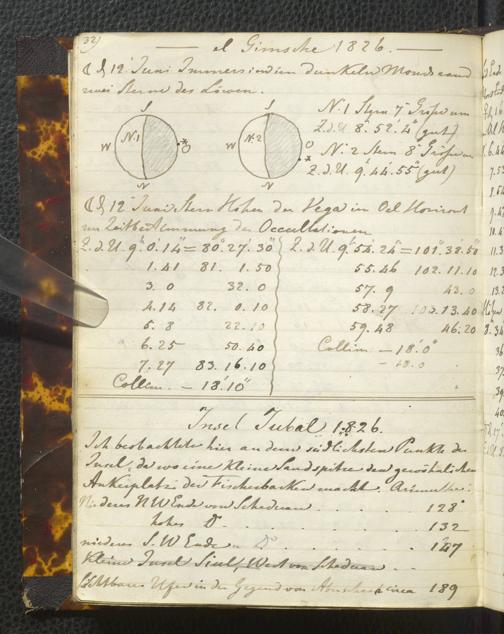 32)
el Gimsche 1826.
☾ d 12 Juni Immersion in dunkeln Mondsrand
zwei Sterne des Löwen.
S
N.1
W
O
N
S
N.2
W
O
N
N.1 Stern 7' Größe um
Z.d.U 8. 52. 4" (gut)
N: 2 Stern 8' Größe um
Z.d.U. 9. 44. 55" (gut)
☾ d 12 Juni Stern Höhen der Vega im Oel Horizont
zur Zeitbestimmung der Occultationen
Z.d.U. 9. 0. 14" = 80. 27. 30"
1. 41 81. 1. 50
3. 0 32. 0
4. 14 82. 0. 10
5. 8 22. 10
6. 25 50. 40
7. 27 83. 16. 10
Collim. — 18'. 10"
Z.d.U. 9. 54. 24" = 101. 38. 50
55. 46 102. 11. 10
57. 9 43. 0
58. 27 103. 13. 40
59. 48 46. 20
Collim — 18'. 0"
Insel Jubal 1826.
Ich beobachtete hier an dem südlichsten Punkte der
Insel, da wo eine kleine Landspitze den gewöhnlichen
Ankerplatz der Fischerbarken macht. Azimuthe:
Niederes NW Ende von Scheduan . . . 128°
hohes do . . . 132
niederes S.W Ende do . . . 147
Kleine Insel Westvon Scheduan . . .
Sichtbares Ufer in der Gegend von circa 189